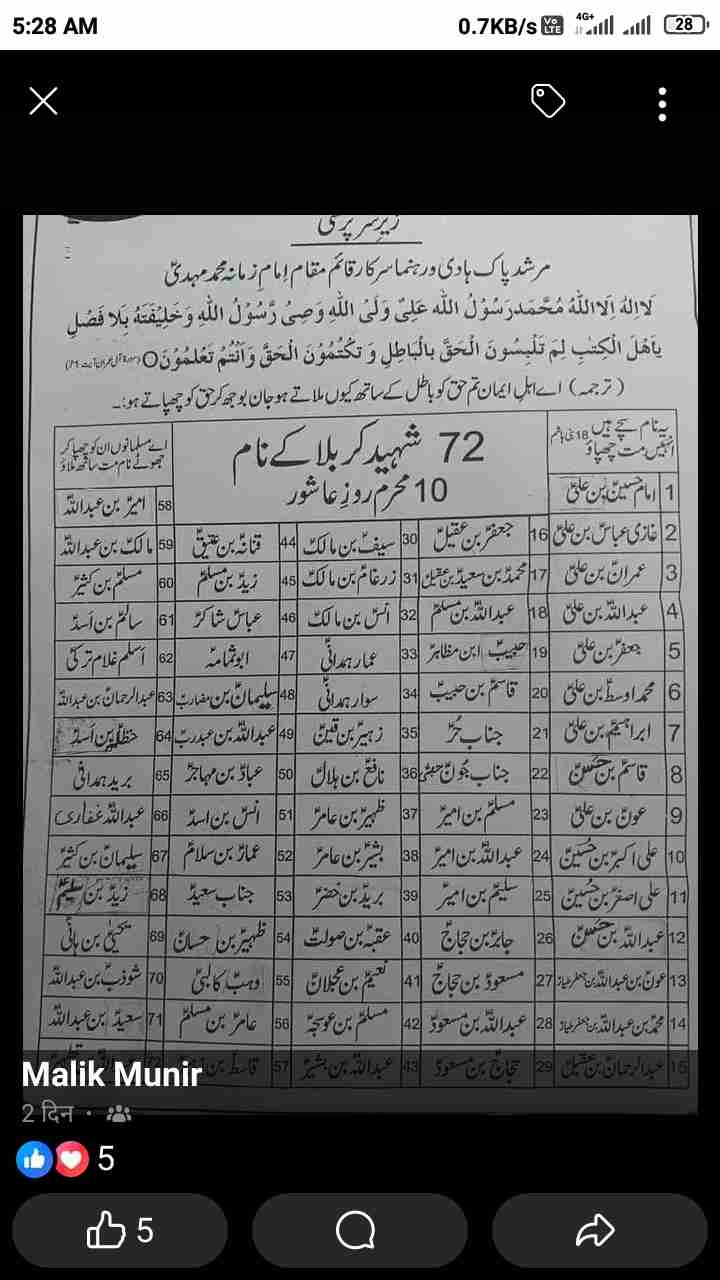 5:28 AM
0.7KB/s Vo LTE 4G+ 28
زیر سرپرستی
مرشد پاک ہادی ورہنما سرکار قائم مقام امام زمانہ محمد مہدیؑ
لَا اِلٰهَ اِلَّا اللهُ مُحَمَّدرَسُوْلُ الله عَلِیٌ وَلَیُ اللهِ وَصِیُ رَّسُوْلُ اللهِ وَخَلِیْفَتَهُ بِلَا فَصْلِ
یاَهْلَ الْکِتٰبِ لِمَ تَلْبِسُونَ الْحَقَّ بالْبَاطِلِ وَ تکْتُمُوْنَ الْحَقَّ وَاَنْتُمْ تَعْلَمُوْنَ
(ترجمہ) اے اہل ایمان تم حق کو باطل کے ساتھ کیوں ملاتے ہو جان بوجھ کر حق کو چھپاتے ہو:۔
یہ نام سچے ہیں 18 بنی ہاشم
انہیں مت چھپاؤ
72 شہید کربلا کے نام
10 محرم روزِ عاشور
اے مسلمانوں ان کو چھپا کر
جھوٹے نام مت ساتھ ملاؤ
1 امام حسینؑ بن علیؑ
58 امیرؑ بن عبداللہ
2 غازی عباسؑ بن علیؑ 16 جعفرؑ بن عقیلؑ 30 سیفؑ بن مالک 44 قنانہؑ بن عتیق 59 مالکؑ بن عبداللہ
3 عمرانؑ بن علیؑ 17 محمدؑ بن سعیدؑ بن عقیلؑ 31 زرغامؑ بن مالک 45 زیدؑ بن مسلم 60 مسلمؑ بن کثیر
4 عبداللہؑ بن علیؑ 18 عبداللہؑ بن مسلمؑ 32 انسؑ بن مالک 46 عباسؑ شاکر 61 سالمؑ بن اسد
5 جعفرؑ بن علیؑ 19 حبیبؑ ابن مظاہرؑ 33 عمار ہمدانیؑ 47 ابوثمامہؑ 62 اسلمؑ غلام ترکی
6 محمد اوسطؑ بن علیؑ 20 قاسمؑ بن حبیبؑ 34 سوار ہمدانیؑ 48 سلیمانؑ بن مضارب 63 عبدالرحمانؑ بن عبداللہ
7 ابراہیمؑ بن علیؑ 21 جناب حُرؑ 35 زہیرؑ بن قینؑ 49 عبداللہؑ بن عبدرب 64 حنظلہؑ بن اسد
8 قاسمؑ بن حسنؑ 22 جناب جُونؑ حبشی 36 نافعؑ بن ہلالؑ 50 عبادؑ بن مہاجرؑ 65 برید ہمدانیؑ
9 عونؑ بن علیؑ 23 مسلمؑ بن امیرؑ 37 ظہیرؑ بن عامرؑ 51 انسؑ بن اسد 66 عبداللہؑ غفاری
10 علی اکبرؑ بن حسینؑ 24 عبداللہؑ بن امیرؑ 38 بشیرؑ بن عامرؑ 52 عمارؑ بن سلامؑ 67 سلیمانؑ بن کثیرؑ
11 علی اصغرؑ بن حسینؑ 25 سلیمؑ بن امیرؑ 39 بریدؑ بن خضرؑ 53 جناب سعیدؑ 68 زیدؑ بن سلیمؑ
12 عبداللہؑ بن حسنؑ 26 جابرؑ بن حجاجؑ 40 عقبہؑ بن صولت 54 ظہیرؑ بن حسانؑ 69 یحییٰؑ بن ہانی
13 عونؑ بن عبداللہؑ بن جعفر طیارؑ 27 مسعودؑ بن حجاجؑ 41 نعیمؑ بن عجلانؑ 55 وہبؑ کالبیؑ 70 شوذبؑ بن عبداللہ
14 محمدؑ بن عبداللہؑ بن جعفر طیارؑ 28 عبداللہؑ بن مسعودؑ 42 مسلمؑ بن عوسجہؑ 56 عامرؑ بن مسلمؑ 71 سعیدؑ بن عبداللہ
15 عبدالرحمانؑ بن عقیلؑ 29 حجاجؑ بن مسعودؑ 43 عبداللہؑ بن بشیرؑ 57 قاسطؑ بن 72
Malik Munir
2 दिन ·
5
5